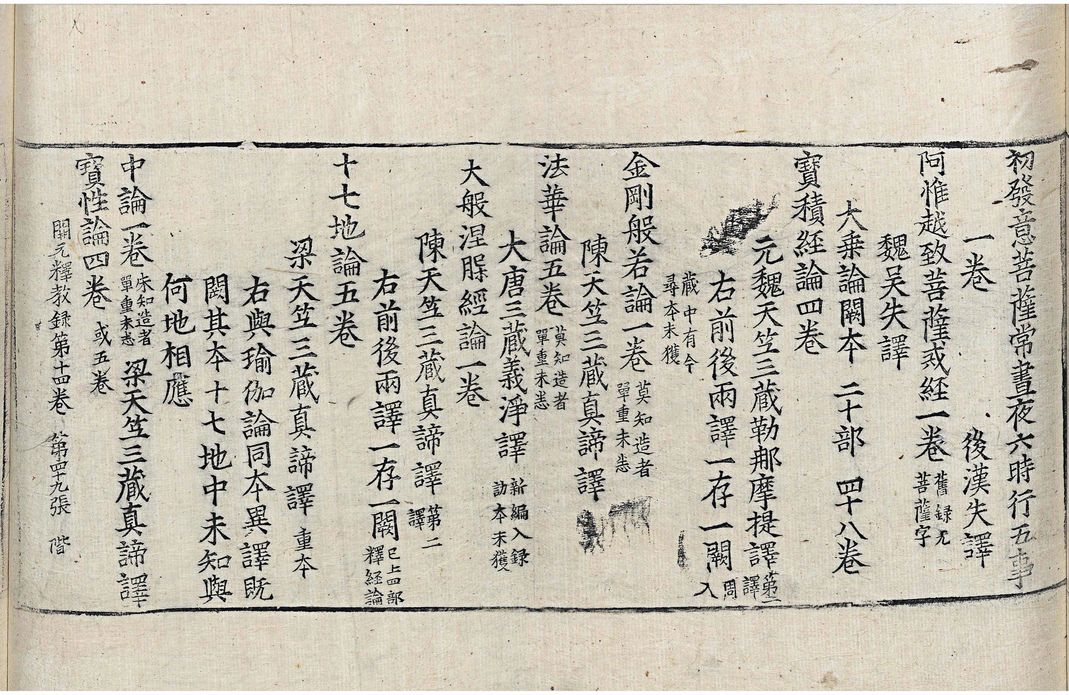 初發意菩薩常晝夜六時行五事
一卷 後漢失譯
阿惟越致菩薩戒經一卷 舊錄无菩薩字
魏吳失譯
大乘論闕本 二十部 四十八卷
寶積經論四卷
元魏天竺三藏勒那摩提譯 第一譯
右前後兩譯一存一闕 周入藏中有今尋本未獲
金剛般若論一卷 莫知造者單重未悉
陳天竺三藏真諦譯
法華論五卷 莫知造者單重未悉
大唐三藏義淨譯 新編入錄訪本未獲
大般涅槃經論一卷
陳天竺三藏真諦譯 第二譯
右前後兩譯一存一闕 已上四部釋經論
十七地論五卷
梁天竺三藏真諦譯 重本
右與瑜伽論同本異譯既
闕其本十七地中未知與
何地相應
中論一卷 未知造者單重未悉 梁天竺三藏真諦譯
寶性論四卷 或五卷
開元釋教錄第十四卷 第四十九張 階